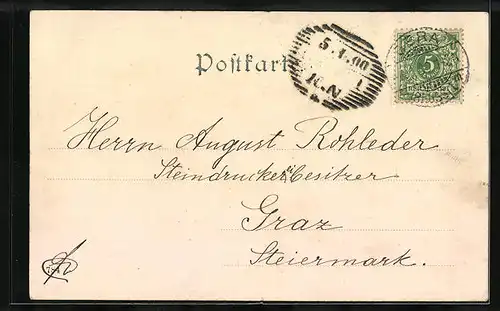 Postkart
5.1.00
10.N
1
5
Herrn August Rohleder
Steindruckereibesitzer
Graz
Steiermark.